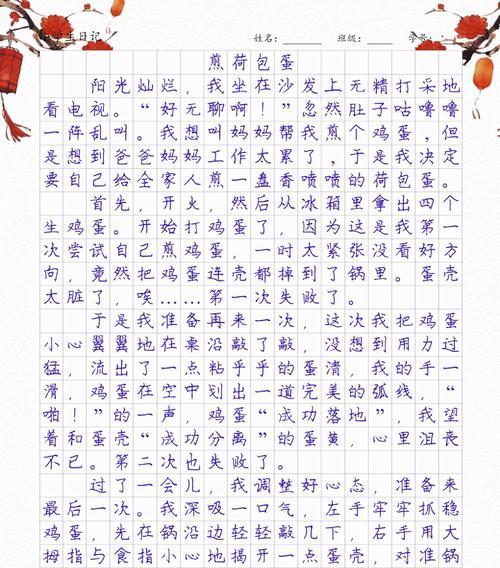 学生日记
姓名：______ 班级：______ 学号：
煎荷包蛋
阳光灿烂，我坐在沙发上无精打采地
看电视。“好无聊啊！”忽然肚子咕噜噜
一阵乱叫。我想叫妈妈帮我煎个鸡蛋，但
是想到爸爸妈妈工作太累了，于是我决定
要自己给全家人煎一盘香喷喷的荷包蛋。
首先，开火，然后从冰箱里拿出四个
生鸡蛋。开始打鸡蛋了，因为这是我第一
次尝试自己煎鸡蛋，一时太紧张没看好方
向，竟然把鸡蛋连壳都掉到了锅里。蛋壳
太脏了，唉……第一次失败了。
于是我准备再来一次，这次我把鸡蛋
小心翼翼地在桌沿敲了敲，没想到用力过
猛，流出了一点粘乎乎的蛋清，我的手一
滑，鸡蛋在空中划出一道完美的弧线，“
啪！”的一声，鸡蛋“成功落地”，我望
着和蛋壳“成功分离”的蛋黄，心里沮丧
不已。第二次也失败了。
过了一会儿，我调整好心态，准备来
最后一次。我深吸一口气，左手牢牢抓稳
鸡蛋，先在锅沿边轻轻敲几下，右手用大
拇指与食指小心地揭开一点蛋壳，对准锅